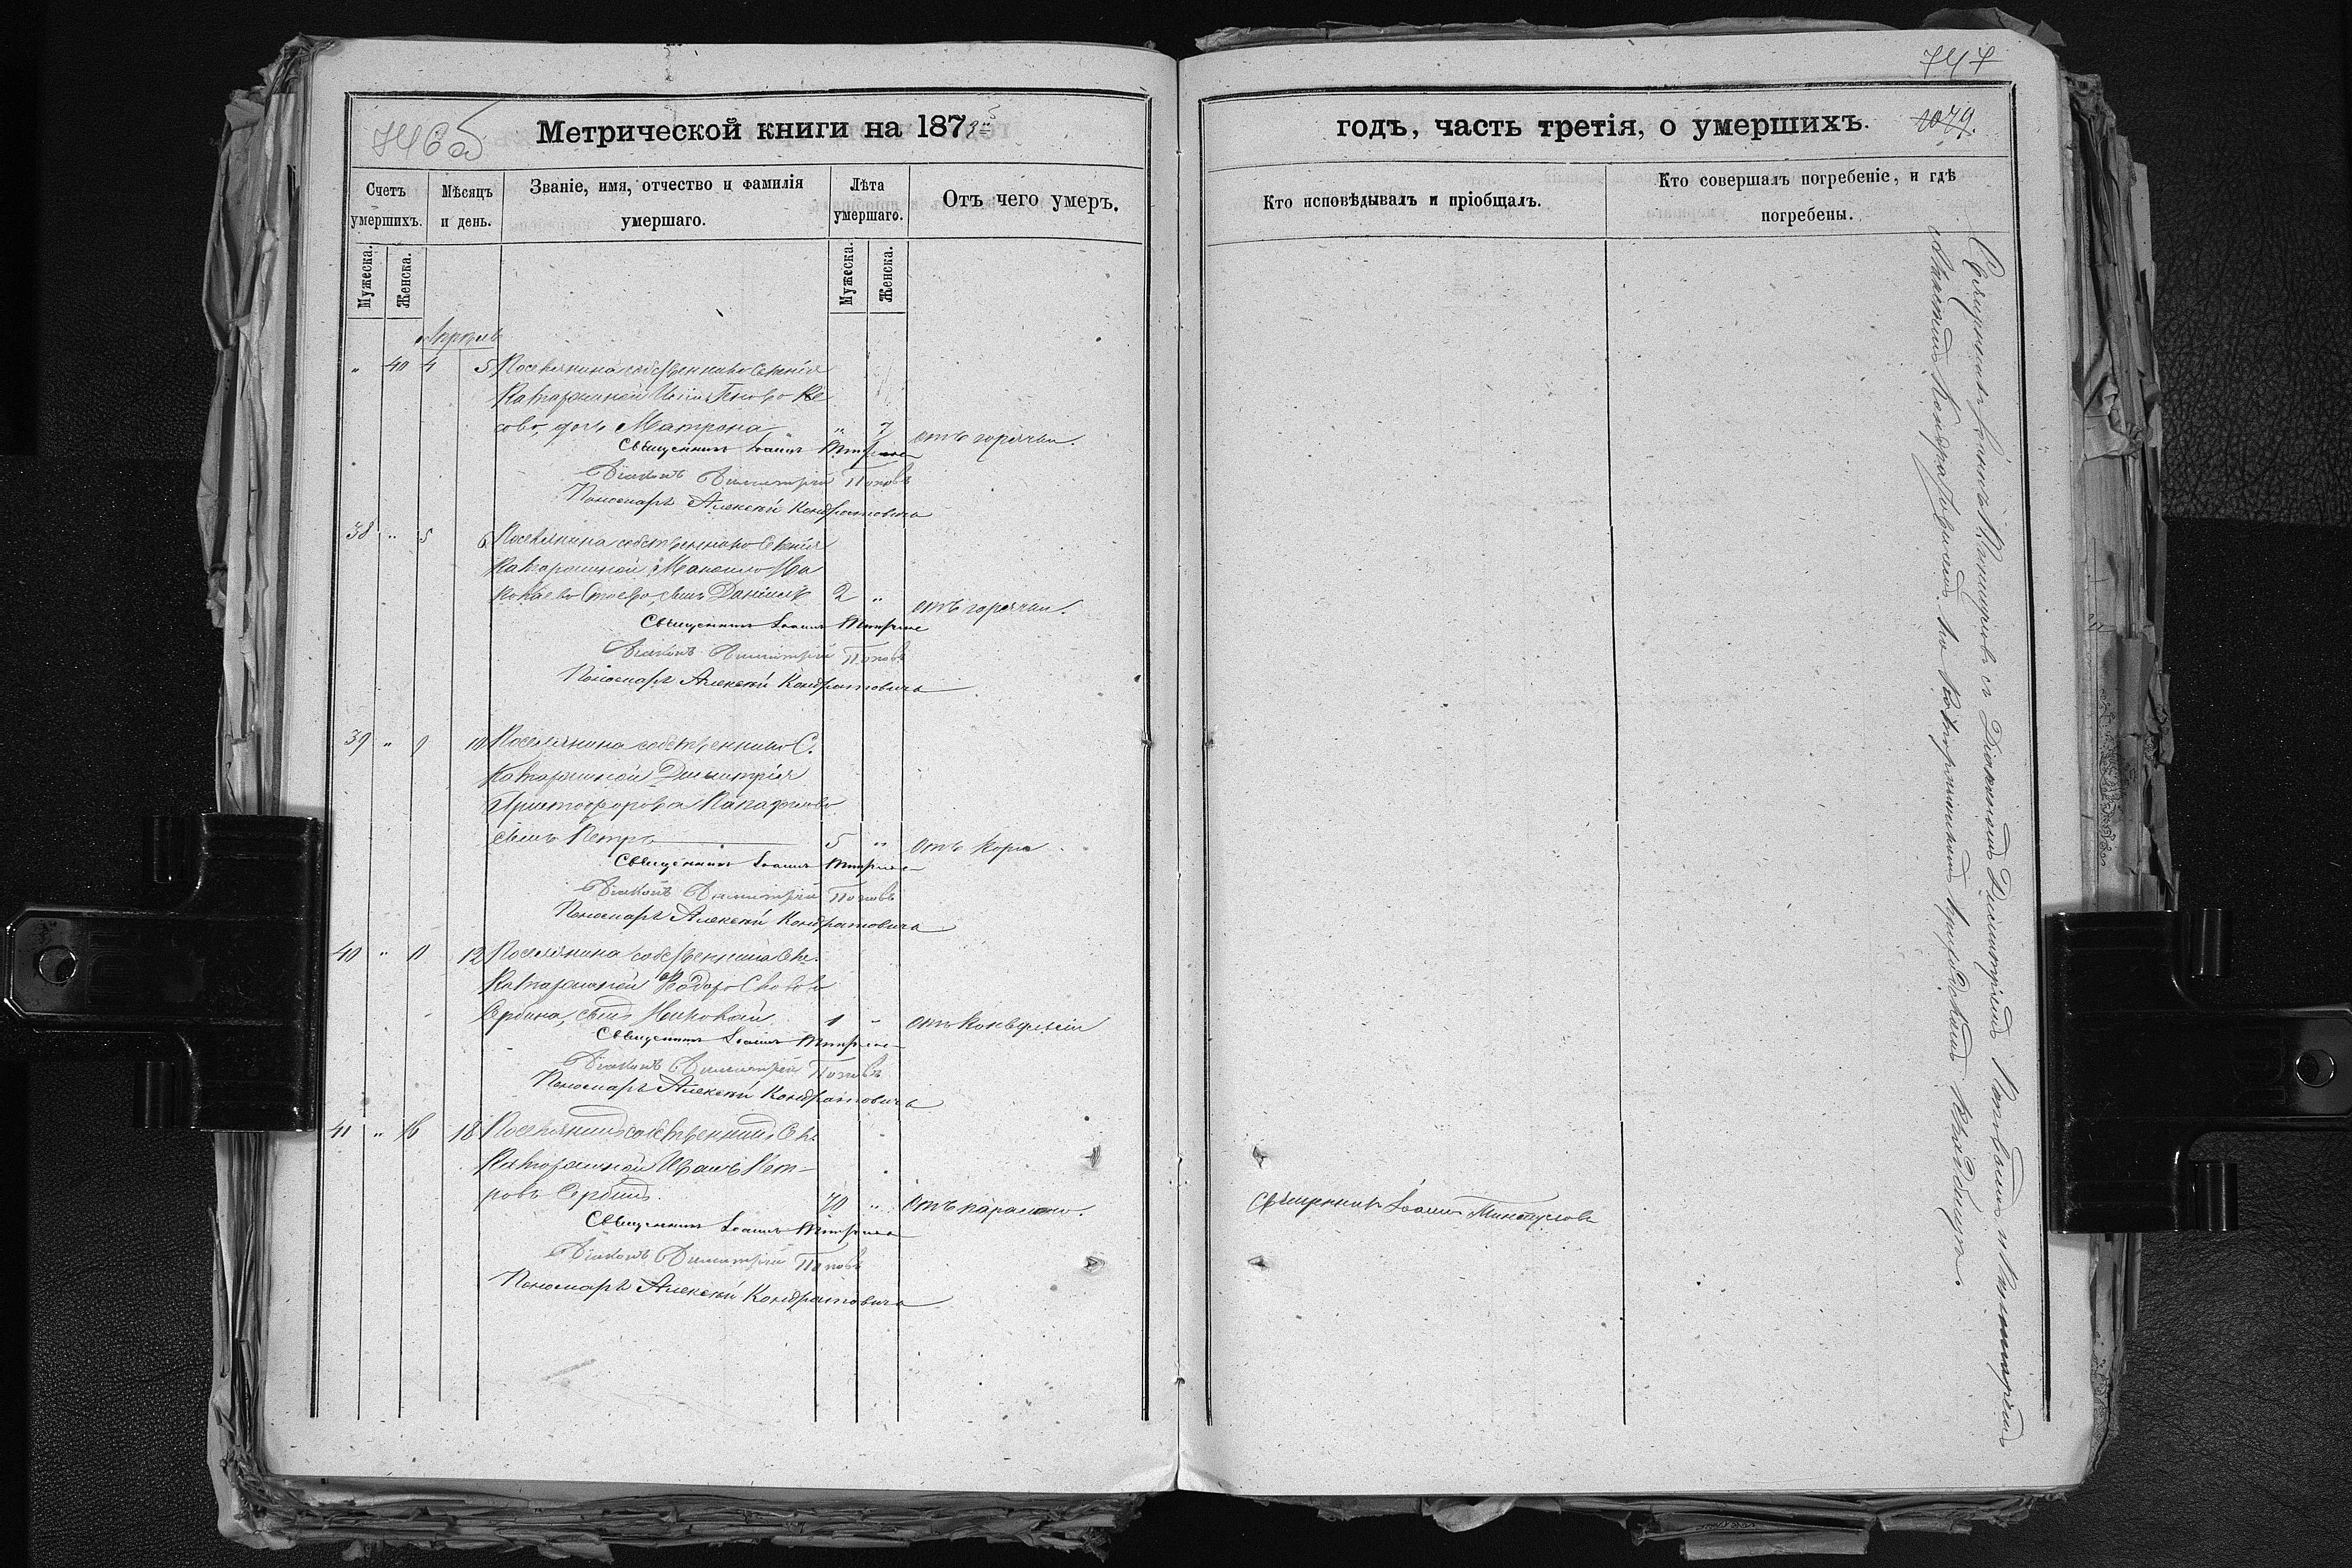 746об
Метрической книги на 187
Счетъ умершихъ.
Мѣсяцъ и день.
Званіе, имя, отчество и фамилія умершаго.
Лѣта умершаго.
Отъ чего умеръ.
Мужеска.
Женска.
Мужеска.
Женска.
Апрѣль
„ 40 4 5 Поселянина собственника Селенія
Катаржиной
сово, дочь Матрона „ 7 отъ горячки.
Священникъ Іоаннъ
Діаконъ Димитрій Поповъ
Пономарь Алексѣй Кондратовичъ
38 „ 5 6 Поселянина собственника Селенія
Катаржиной
сынъ Даніилъ 2 „ отъ горячки.
Священникъ Іоаннъ
Діаконъ Димитрій Поповъ
Пономарь Алексѣй Кондратовичъ
39 „ 9 10 Поселянина собственника С.
Катаржиной Димитрія
Христофорова
сынъ Петръ 5 „ отъ кори
Священникъ Іоаннъ
Діаконъ Димитрій Поповъ
Пономарь Алексѣй Кондратовичъ
40 „ 11 12 Поселянина собственника Сел.
Катаржиной
Сербина, сынъ Николай 1 „ отъ
Священникъ Іоаннъ
Діаконъ Димитрій Поповъ
Пономарь Алексѣй Кондратовичъ
41 „ 16 18 Поселянинъ собственникъ Сел.
Катаржиной Иванъ Пет-
ровъ Сербинъ. 70 „ отъ
Священникъ Іоаннъ
Діаконъ Димитрій Поповъ
Пономарь Алексѣй Кондратовичъ
747
годъ, часть третія, о умершихъ.
1079.
Кто исповѣдывалъ и пріобщалъ.
Кто совершалъ погребеніе, и гдѣ погребены.
Священникъ Іоаннъ
Священникъ Іоаннъ съ Діакономъ Димитріемъ Поповымъ и Пономаремъ
Алексѣемъ Кондратовичемъ на Катаржинскомъ приходскомъ кладбищѣ.